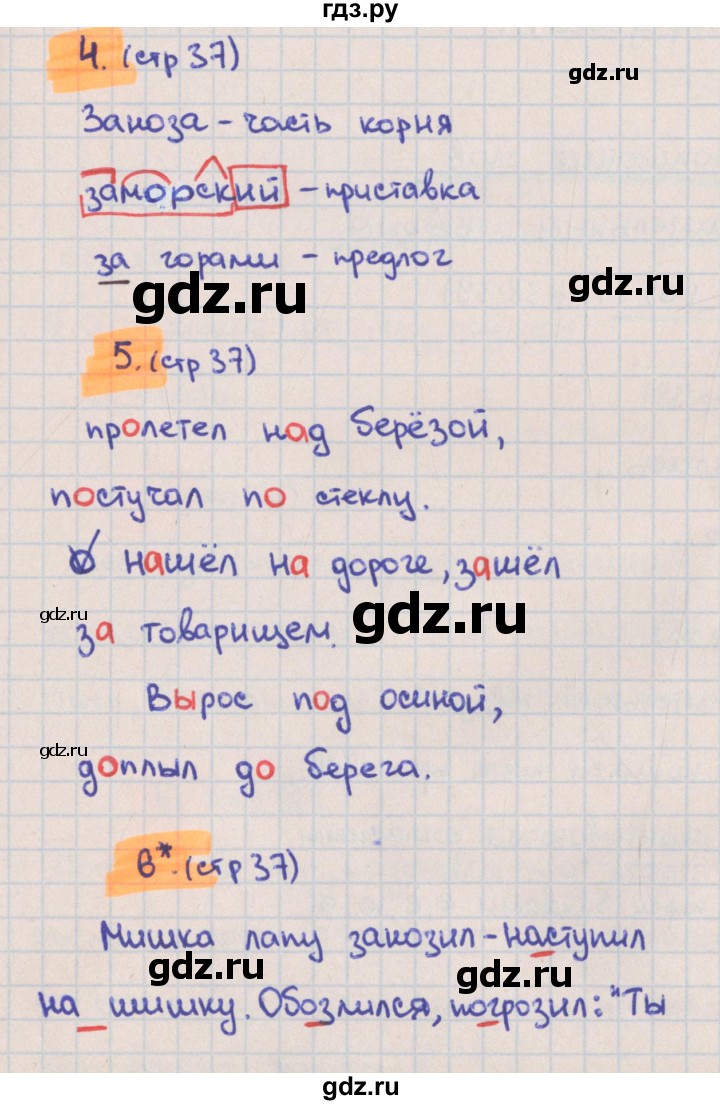 гдз.ру
4. (стр 37)
gdz.ru
Заноза - часть корня
заморский - приставка
за горами - предлог
gdz.ru
gdz.ru
5. (стр 37)
пролетел над берёзой,
постучал по стеклу.
нашёл на дороге, зашёл
gdz.ru
за товарищем.
gdz.ru
Вырос под осиной,
gdz.ru
доплыл до берега.
6*. (стр 37)
Мишка лапу занозил - наступил
gdz.ru
gdz.ru
на шишку. Обозлился, погрозил: "Ты
gdz.ru